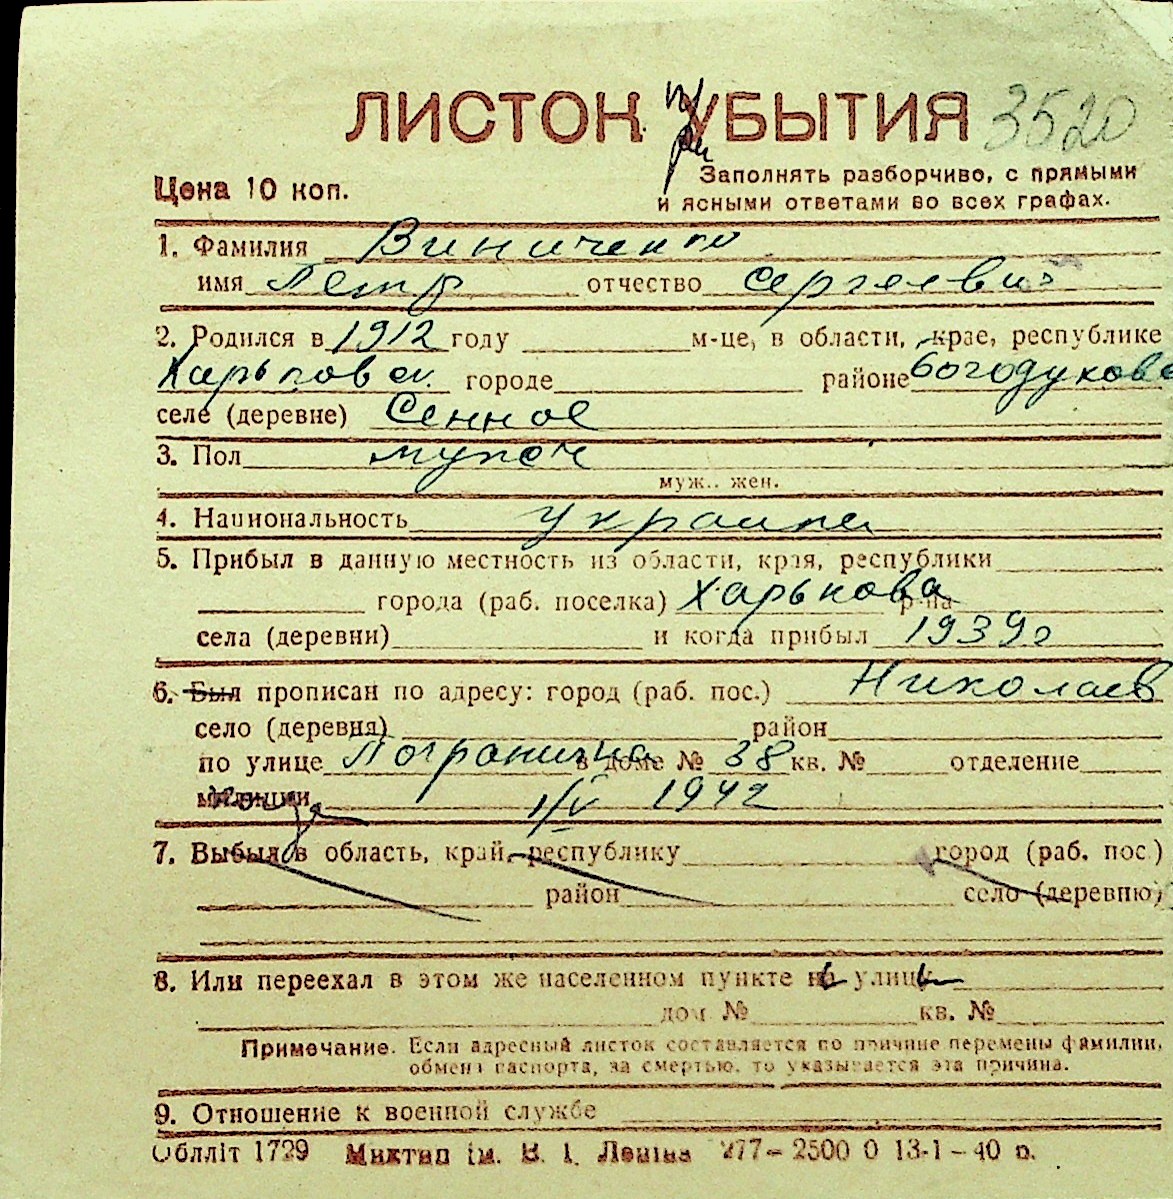 ЛИСТОК УБЫТИЯ 3520
Цена 10 коп.
Заполнять разборчиво, с прямыми
и ясными ответами во всех графах.
1. Фамилия Виниченко
имя Петр отчество Сергеевич
2. Родился в 1912 году м-це, в области, крае, республике
Харьковск. городе районе Богодухове
селе (деревне) Сенное
3. Пол мужск
муж.. жен.
4. Национальность украине
5. Прибыл в данную местность из области, края, республики
города (раб. поселка) Харькова р-на
села (деревни) и когда прибыл 1939г
6. Был прописан по адресу: город (раб. пос.) Николаев
село (деревня) район
по улице Погранична в доме № 38 кв. № отделение
милиции 1/V 1942
7. Выбыл в область, край, республику город (раб. пос.)
район село (деревню)
8. Или переехал в этом же населенном пункте на улицу
дом № кв. №
Примечание. Если адресный листок составляется по причине перемены фамилии,
обмена паспорта, за смертью, то указывается эта причина.
9. Отношение к военной службе
Облліт 1729 Миктип ім. В. І. Леніна 277– 2500 0 13-1 – 40 р.